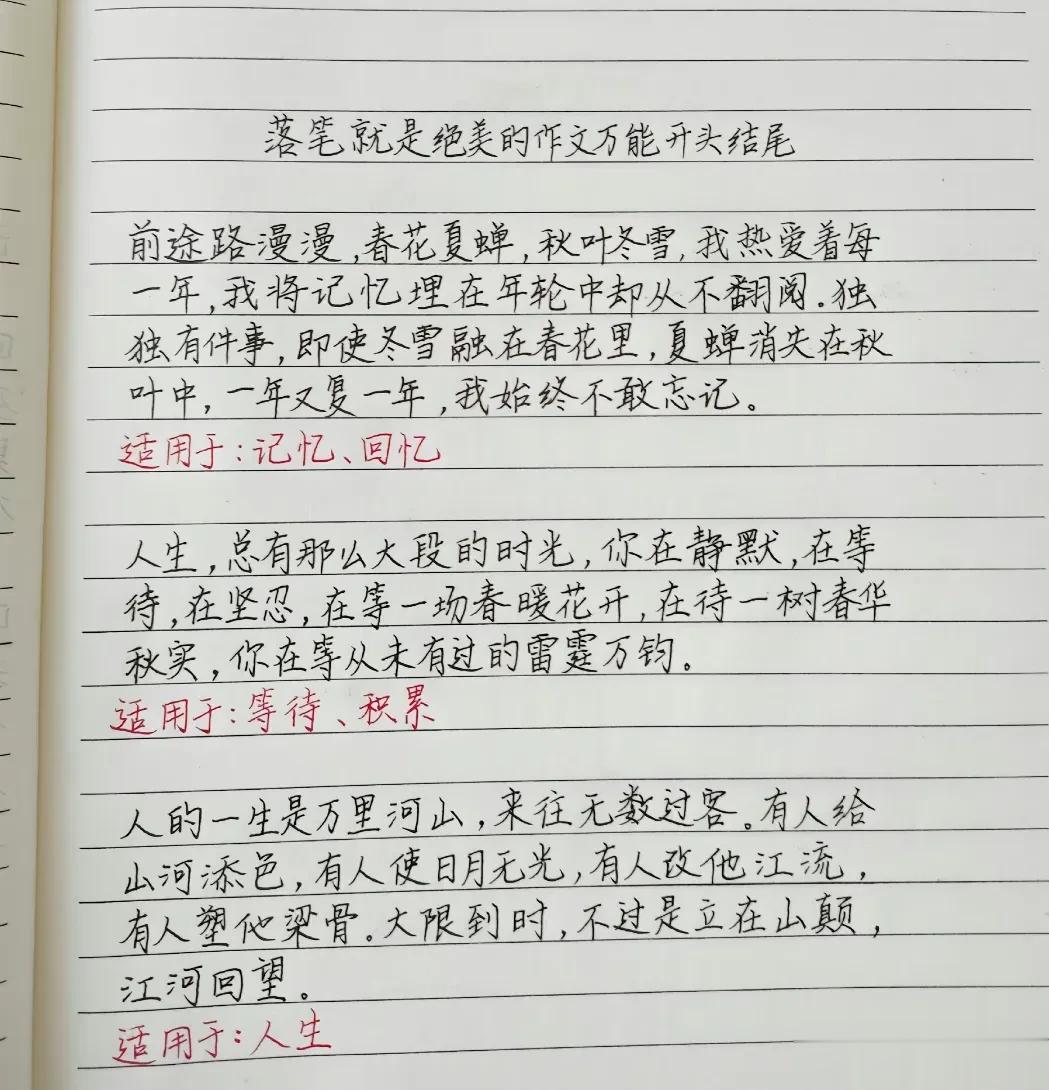 落笔就是绝美的作文万能开头结尾
前途路漫漫,春花夏蝉,秋叶冬雪,我热爱着每
一年,我将记忆埋在年轮中却从不翻阅.独
独有件事,即使冬雪融在春花里,夏蝉消失在秋
叶中,一年又复一年,我始终不敢忘记。
适用于:记忆、回忆
人生,总有那么大段的时光,你在静默,在等
待,在坚忍,在等一场春暖花开,在待一树春华
秋实,你在等从未有过的雷霆万钧。
适用于:等待、积累
人的一生是万里河山,来往无数过客。有人给
山河添色,有人使日月无光,有人改他江流,
有人塑他梁骨。大限到时,不过是立在山颠,
江河回望。
适用于:人生